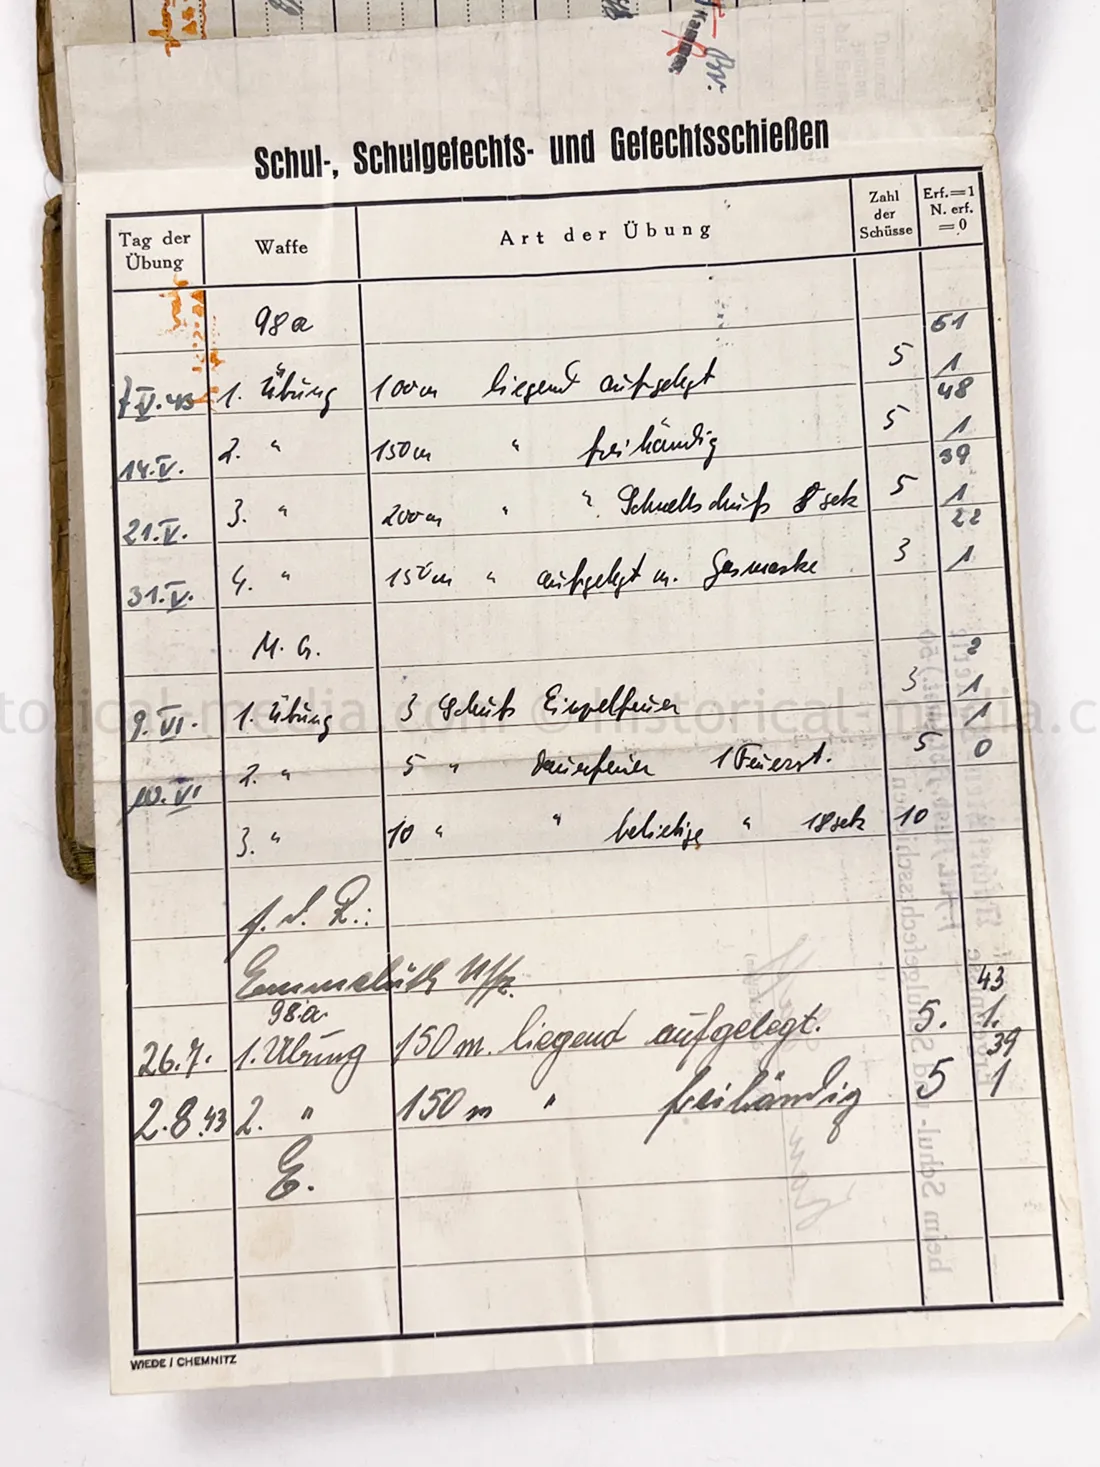 Br.
Schul-, Schulgefechts- und Gefechtsschießen
Tag der Übung Waffe Art der Übung Zahl der Schüsse Erf.=1 N. erf. =0
98a 51
7.V.43 1. Übung 100m liegend aufgelegt 5 1
48
14.V. 2. " 150m " freihändig 5 1
39
21.V. 3. " 200m " " Schnellschuß 8 sek 5 1
22
31.V. 4. " 150m " aufgelegt m. Gasmaske 3 1
M.G. 2
9.VI. 1. Übung 3 Schuß Einzelfeuer 3 1
1
10.VI 2. " 5 " Dauerfeuer 1 Feuerst. 5 0
3. " 10 " " beliebige " 18 sek 10
f.d.R.:
Uffz.
98.a. 43
26.7. 1. Übung 150 m. liegend aufgelegt. 5. 1.
39
2.8.43 2. " 150 m " freihändig 5 1
E.
WIEDE / CHEMNITZ
historical-media.com © historical-media.c